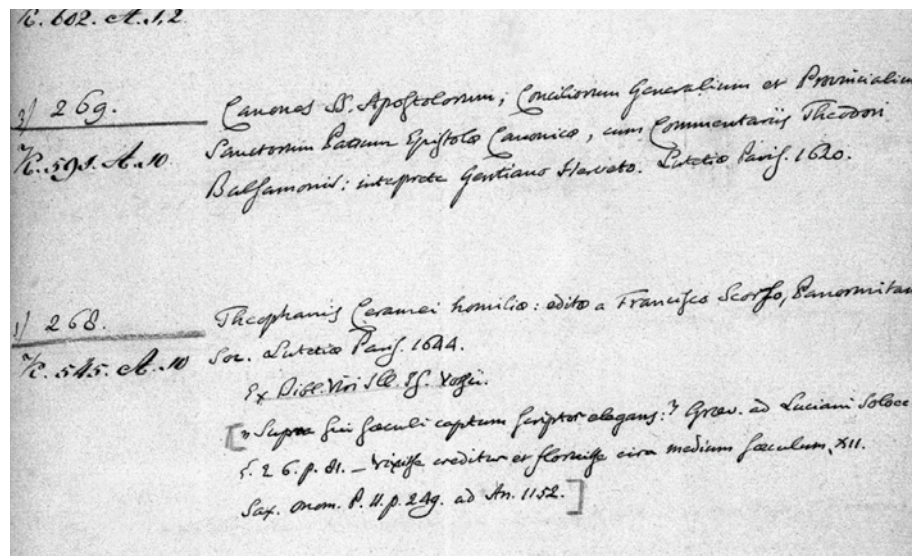 K. 602. A. 1, 2
3) 269. Canones SS. Apostolorum; Conciliorum Generalium et Provincialium
Sanctorum Patrum Epistolæ Canonicæ, cum Commentariis Theodori
K. 591. A. 10. Balsamonis: interprete Gentiano Herveto. Lutetiæ Paris. 1620.
1) 268. Theophanis Ceramei homiliæ: editæ a Francisco Scorso, Panormitan
K. 545. A. 10 Soc. Lutetiæ Paris. 1644.
Ex Bibl. Viri Ill. Is. Vossii.
["Supra sui sæculi captum scriptor elegans." Græv. ad Luciani Soloec
p. 81. – Vixisse creditur et floruisse circa medium sæculum XII.
Sax. onom. P. II. p. 249. ad An. 1152.]